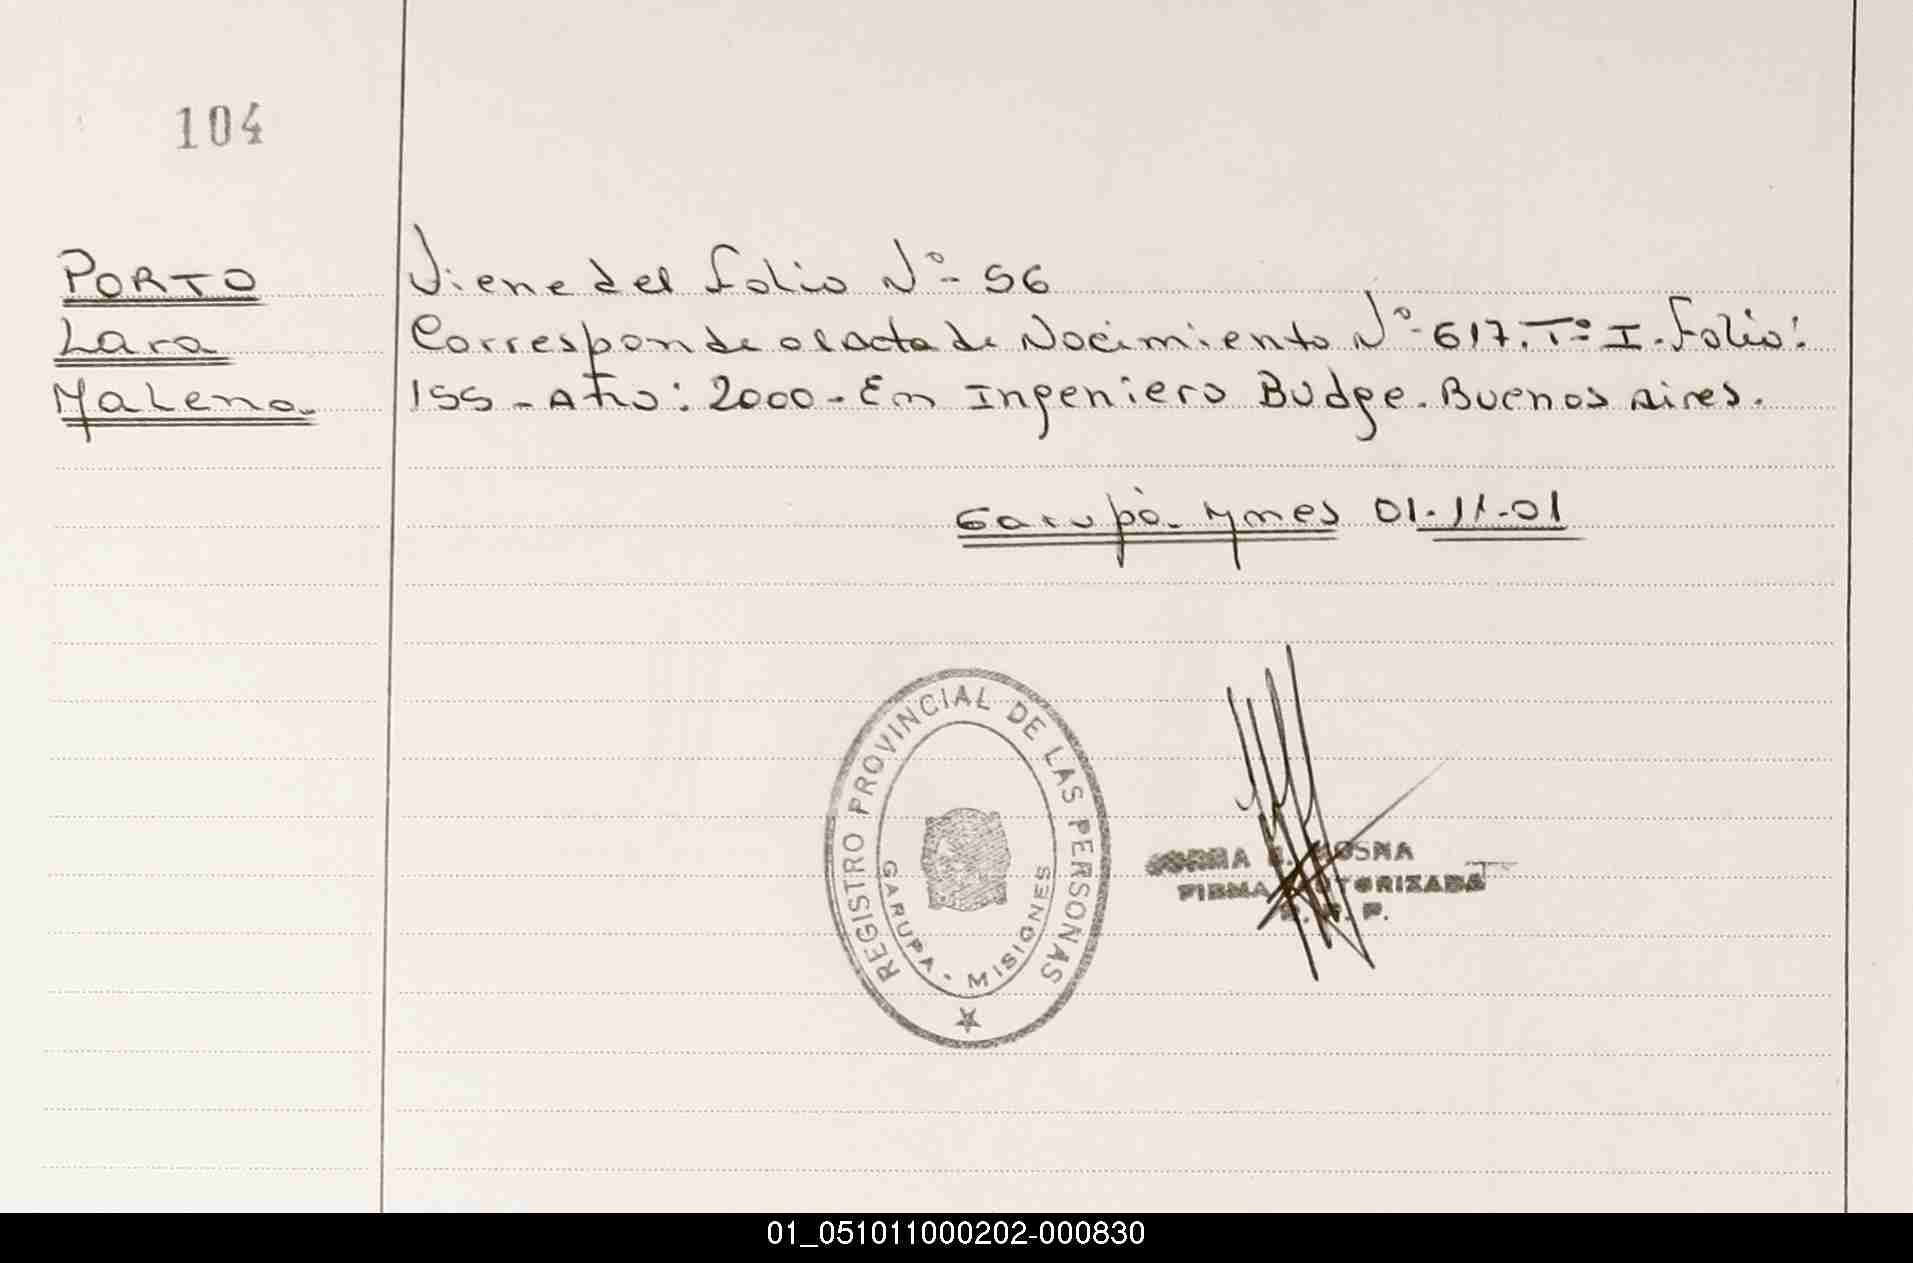 104
PORTO
Lara
Malena.
Viene del folio Nº- 56
Corresponde al acta de Nacimiento Nº- 617. Tº I. folio:
155 - Año: 2000 - En Ingeniero Budge. Buenos Aires.
Garupá. Mnes 01-11-01
REGISTRO PROVINCIAL DE LAS PERSONAS
GARUPA - MISIONES
FIRMA AUTORIZADA
01_051011000202-000830